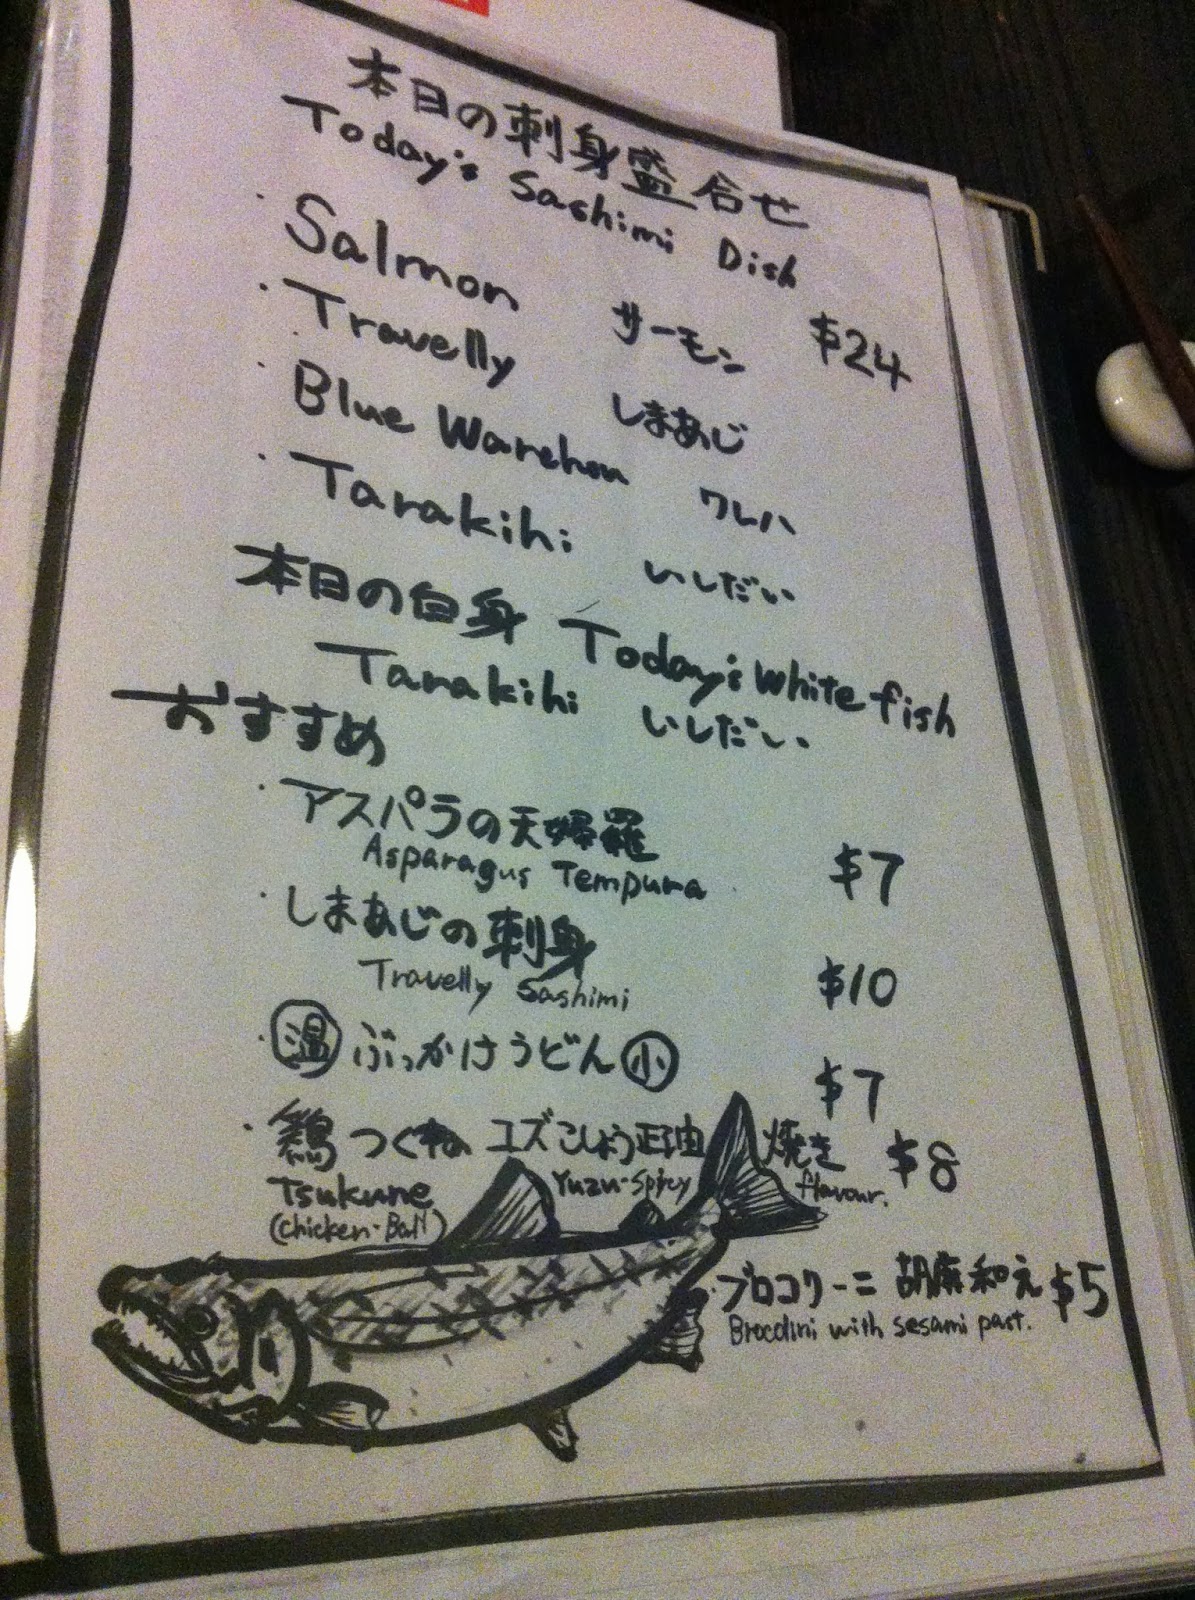 本日の刺身盛合せ
Today's Sashimi Dish
· Salmon サーモン $24
· Travelly しまあじ
· Blue Warehou ワレハ
· Tarakihi いしだい
本日の白身 Today's white fish
Tarakihi いしだい
おすすめ
· アスパラの天婦羅
Asparagus Tempura $7
· しまあじの刺身
Travelly Sashimi $10
· 温 ぶっかけうどん 小 $7
· 鶏つくね ユズこしょう正油焼き $8
Tsukune Yuzu-Spicy flavour.
(chicken-Ball)
· ブロコリーニ 胡麻和え $5
Brocolini with sesami past.